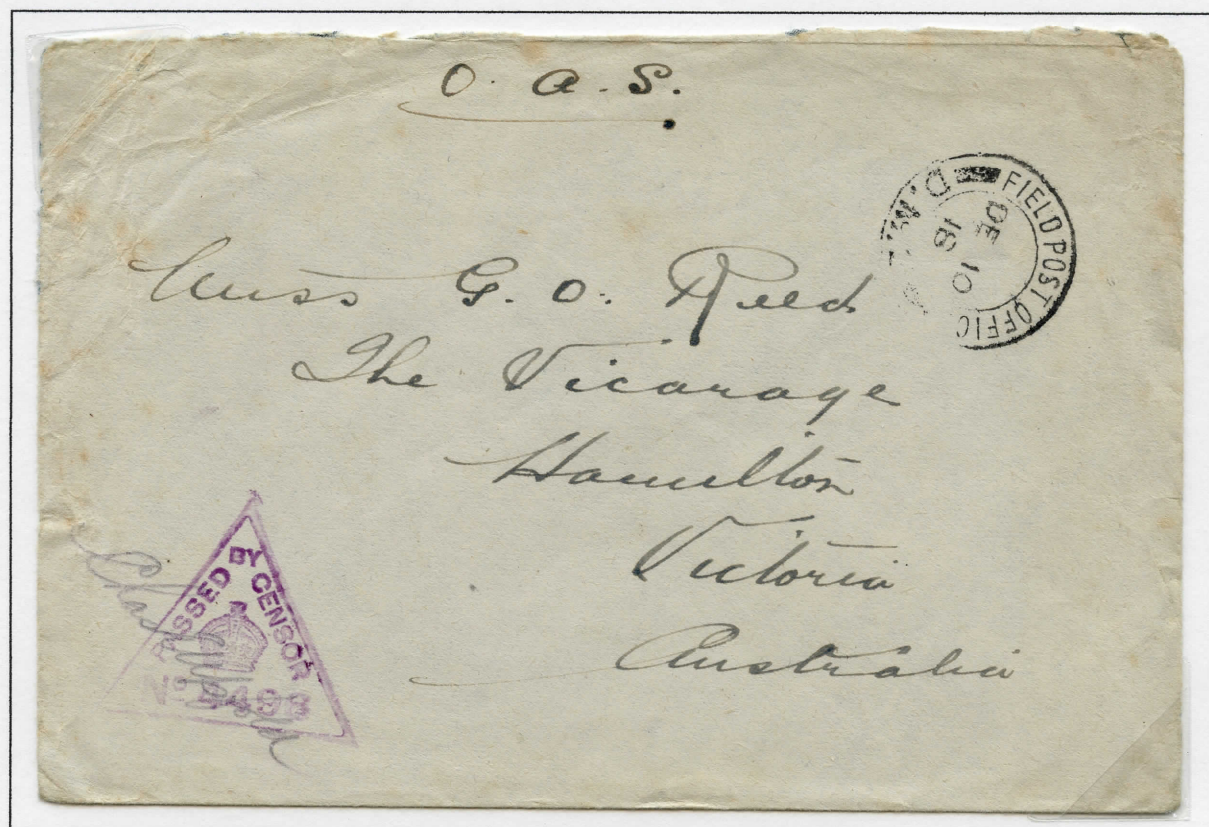 O. A. S.
FIELD POST OFFIC
DE
18
10
Miss G. O. Reed
The Vicarage
Hamilton
Victoria
Australia
PASSED BY CENSOR
No 4498
Chas